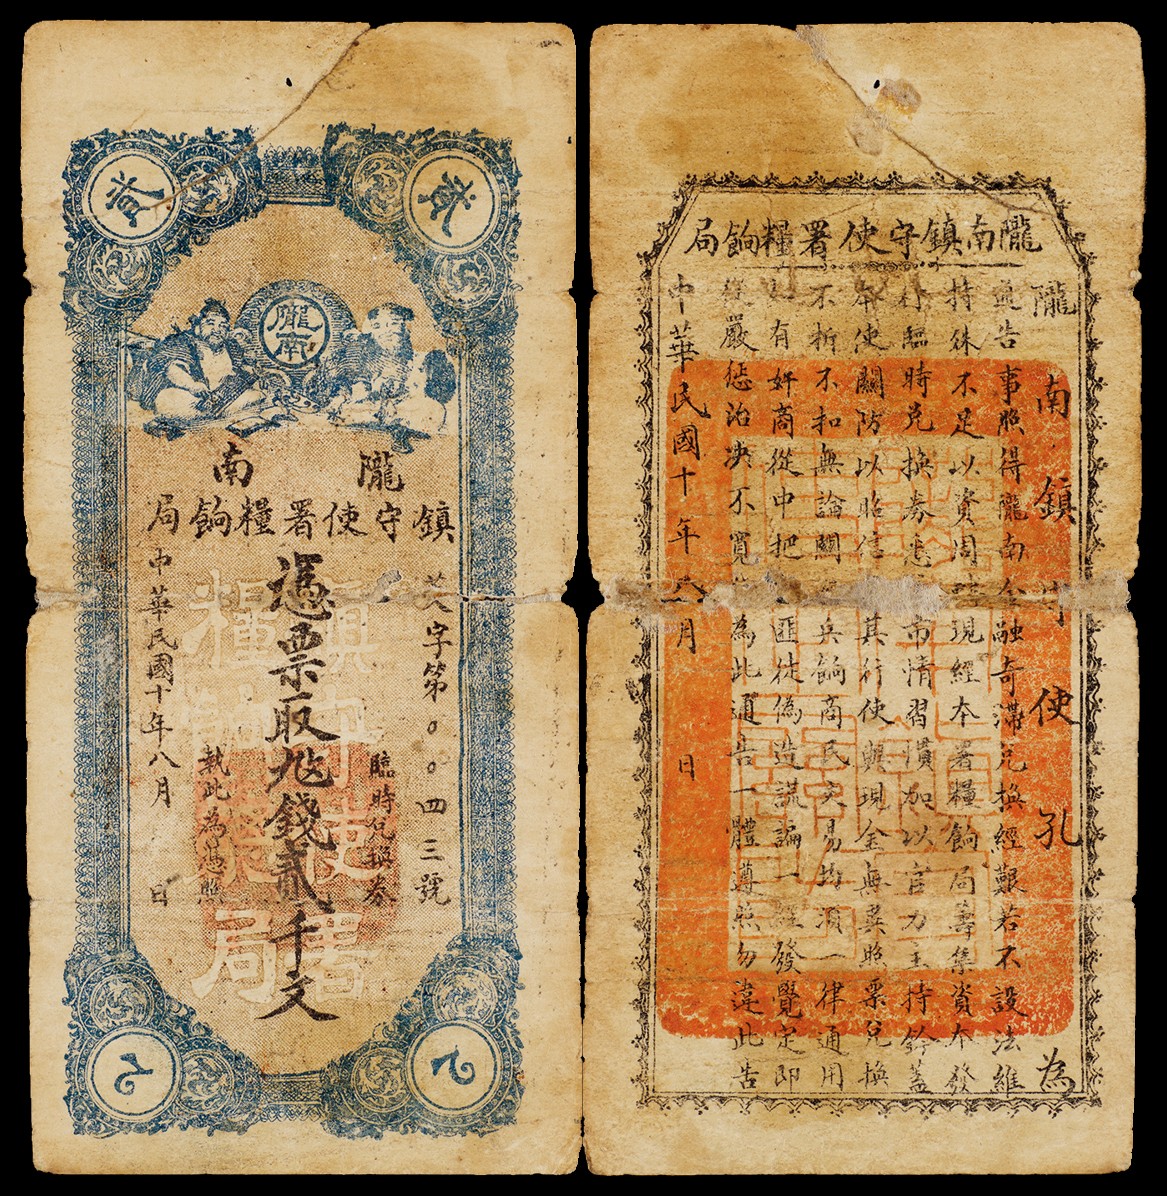 貳
弍
隴南
隴南
鎮守使署糧餉局
字第〇〇四三號
臨時兌換券
憑票取尨錢貳千文
執此為憑照
中華民國十年八月 日
鎮守使署
糧餉局
隴南鎮守使署糧餉局
隴南鎮守使孔 為
通告事照得隴南金融奇滯兌換經艱若不設法維
持殊不足以資周現經本署糧餉局籌集資本發
行臨時兌換券悉市情習慣加以官力主持鈐蓋
本使關防以昭信其行使與現金無異照票兌換
不折不扣無論關兵餉商民交易均須一律通用
如有奸商從中把匪徒偽造謊騙一經發覺定即
從嚴懲治決不寬為此通告一體遵照勿違此告
中華民國十年八月 日